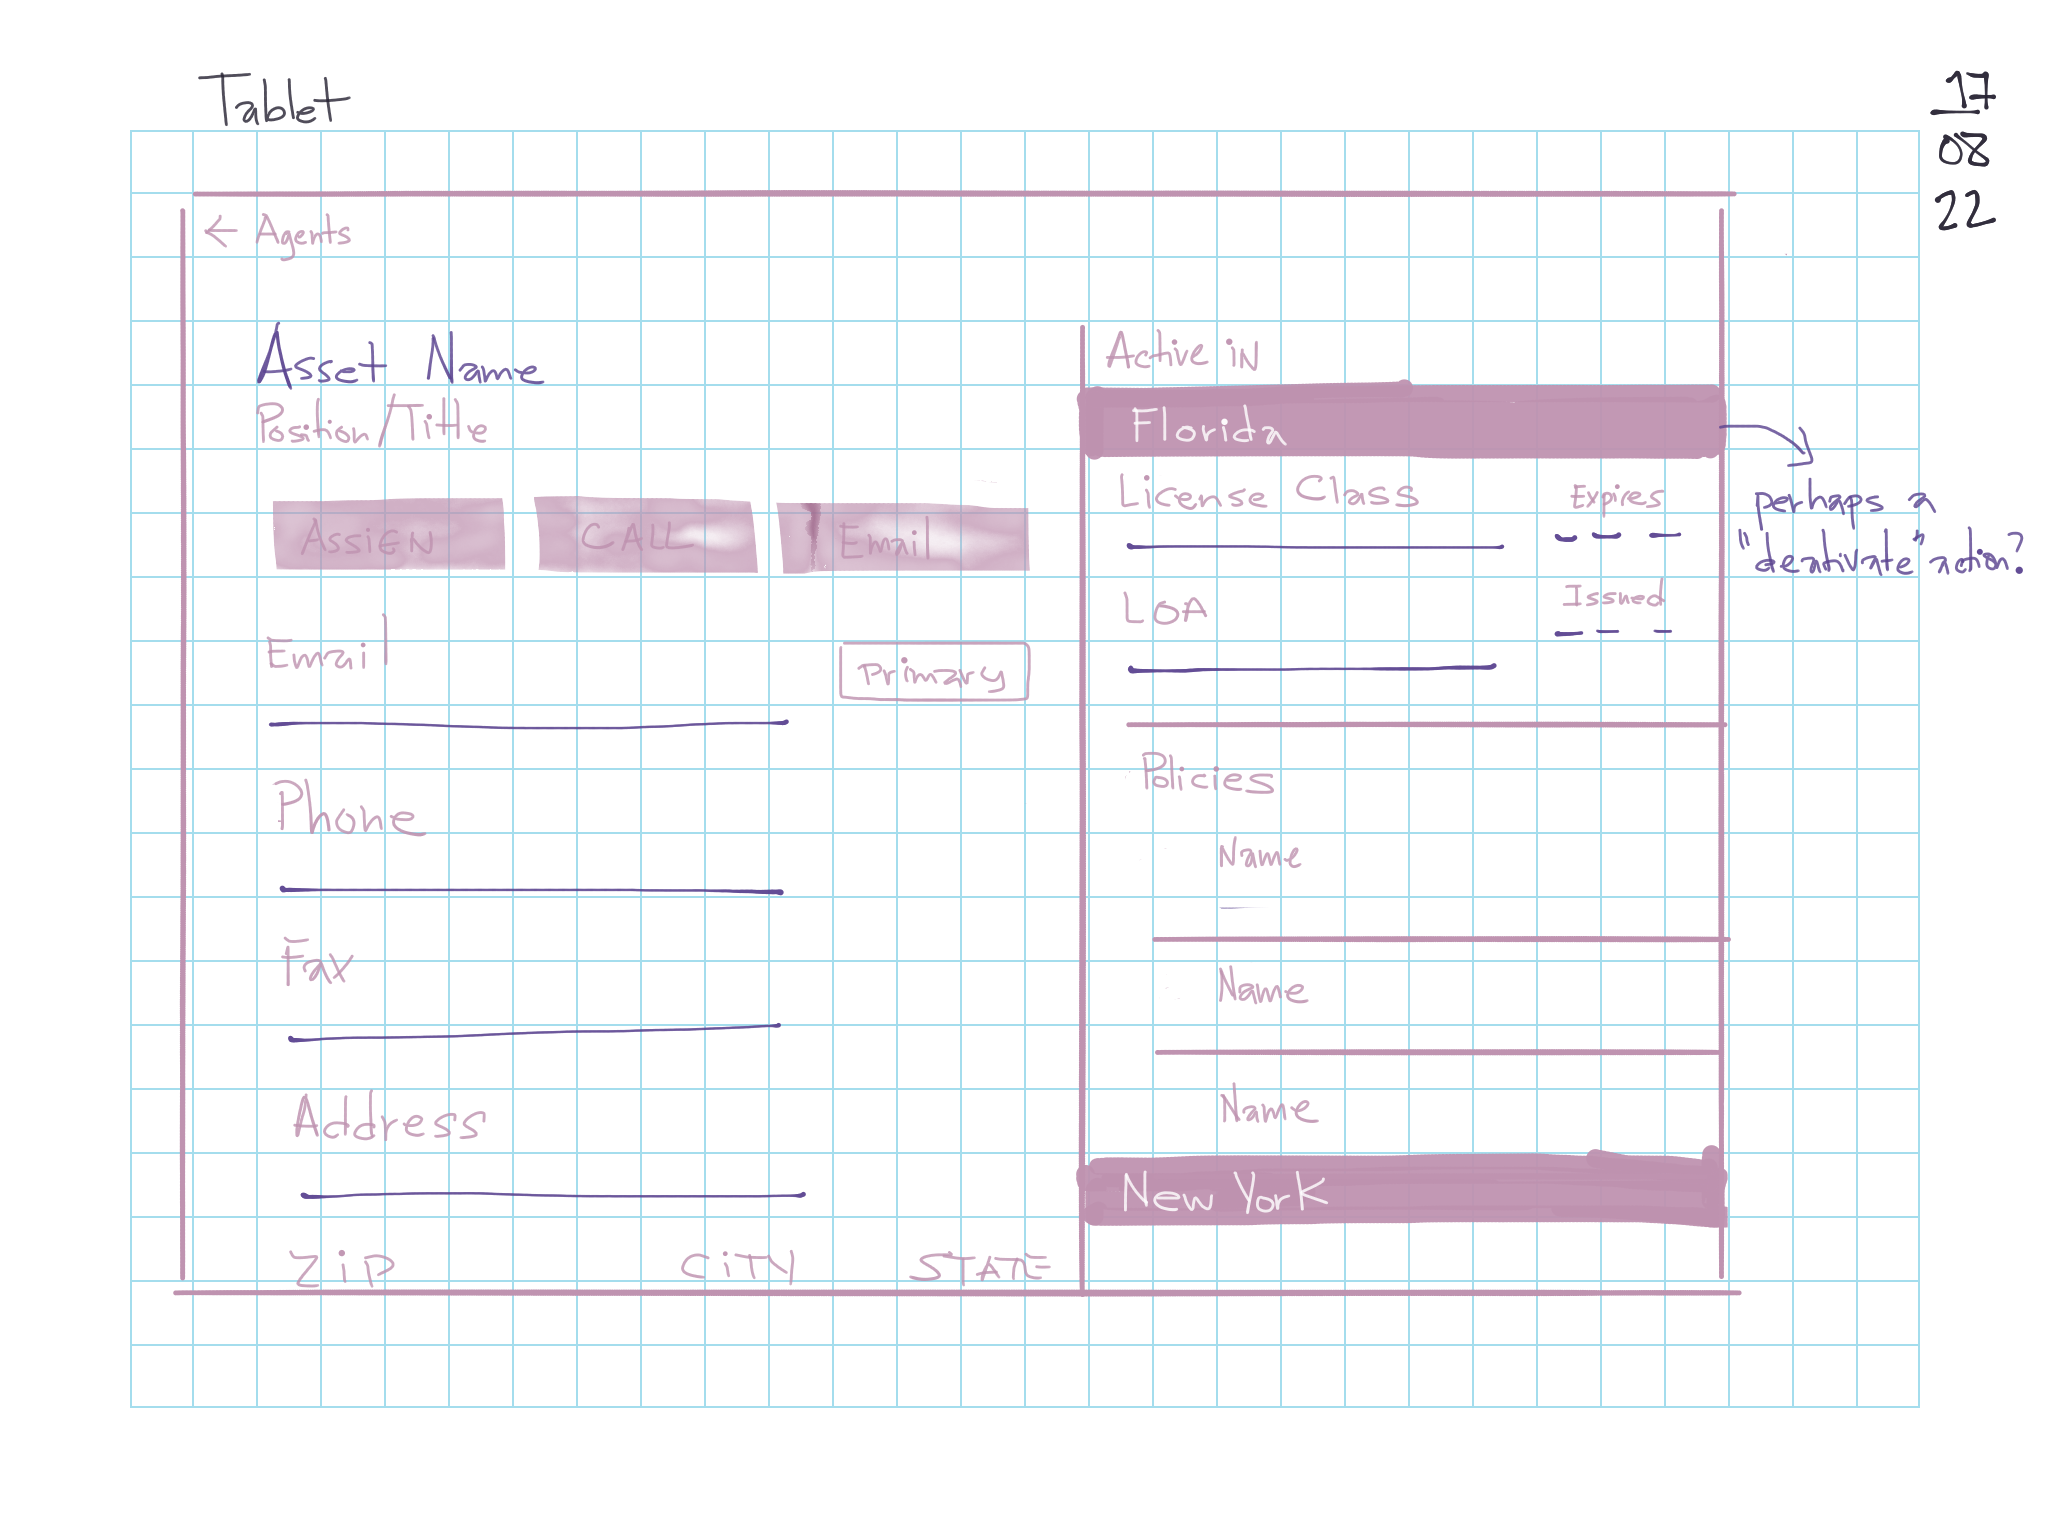 Tablet
17
08
22
← Agents
Asset Name
Position/Title
ASSIGN
CALL
Email
Email
Primary
Phone
Fax
Address
ZiP
CiTY
STATE
Active iN
Florida
License Class
Expires
LOA
Issued
Policies
Name
Name
Name
New York
perhaps a
"deativate" action?